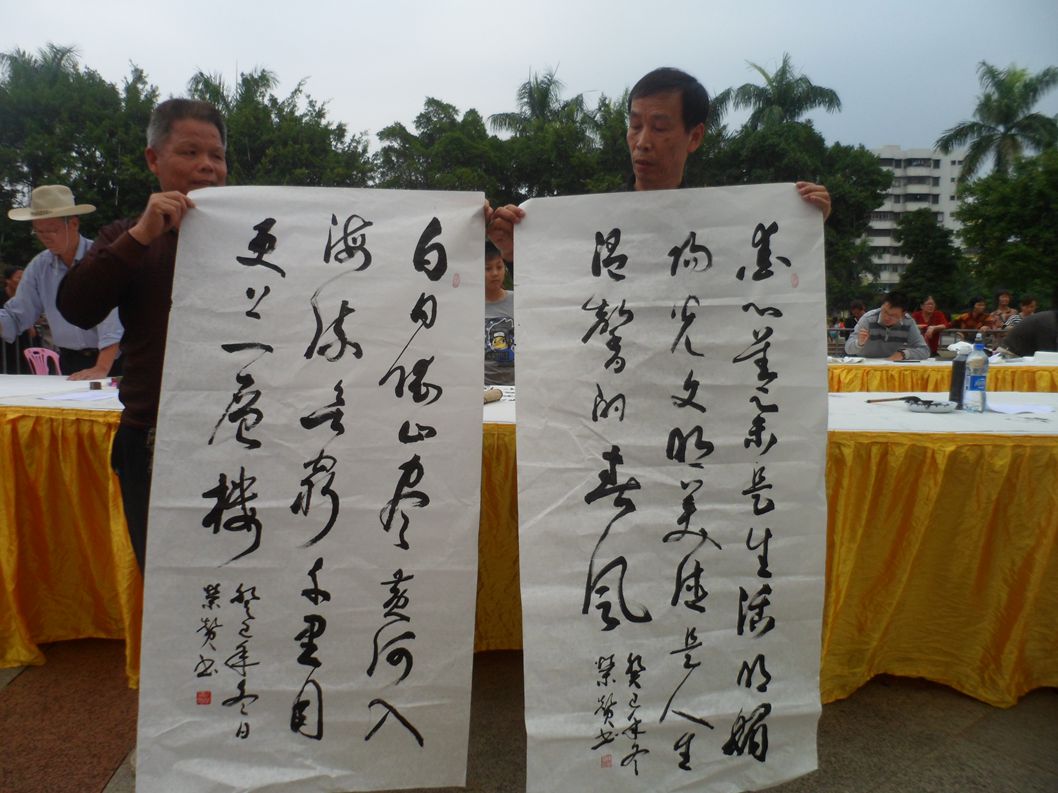 白日依山尽黄河入
海流欲穷千里目
更上一层楼
癸巳年冬日
榮赞书
心善是生活明媚
阳光文明美德是人生
温馨的春风
癸巳年冬
榮赞书